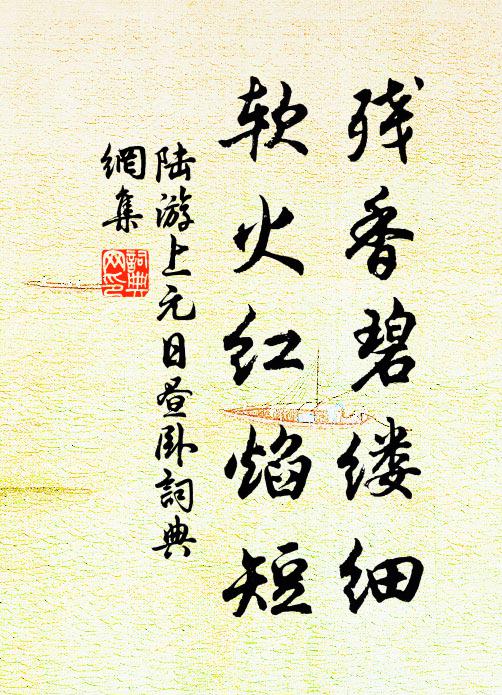 残香碧缕细
软火红焰短
陆游上元日昼卧詞典
網集
詞典
网印